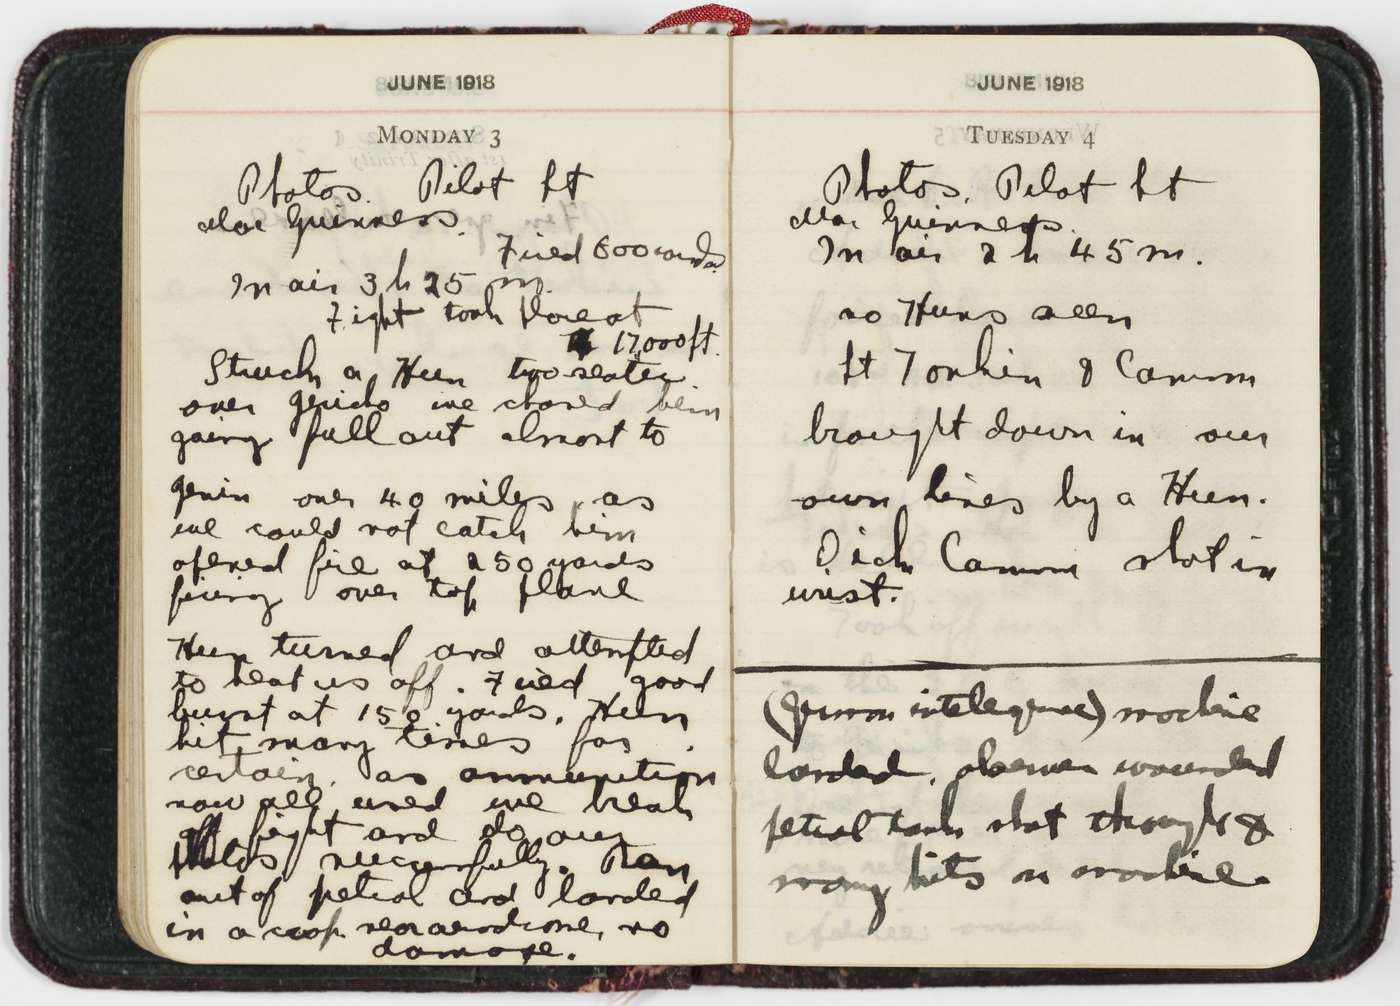 JUNE 1918
MONDAY 3
Photos. Pilot Lt
Mac Guinness.
Fired 600 rounds
In air 3 h 25 m.
Fight took place at
17,000 ft.
Struck a Hun two seater
over Jericho we chased him
going full out almost to
Jenin over 40 miles, as
we could not catch him
opened fire at 250 yards
firing over top plane
Hun turned and attempted
to beat us off. Fired good
burst at 150 yards. Hun
hit many times for
certain. as ammunition
now all used we break
off fight and do our
photos successfully. Ran
out of petrol and landed
in a crop near aerodrome, no
damage.
JUNE 1918
TUESDAY 4
Photos. Pilot Lt
Mac Guinness.
In air 2 h 45 m.
no Huns seen
Lt Tonkin & Camm
brought down in our
own lines by a Hun.
Dick Camm shot in
wrist.
(German intelegence) machine
landed, observer wounded
petrol tank shot through &
many hits in machine.